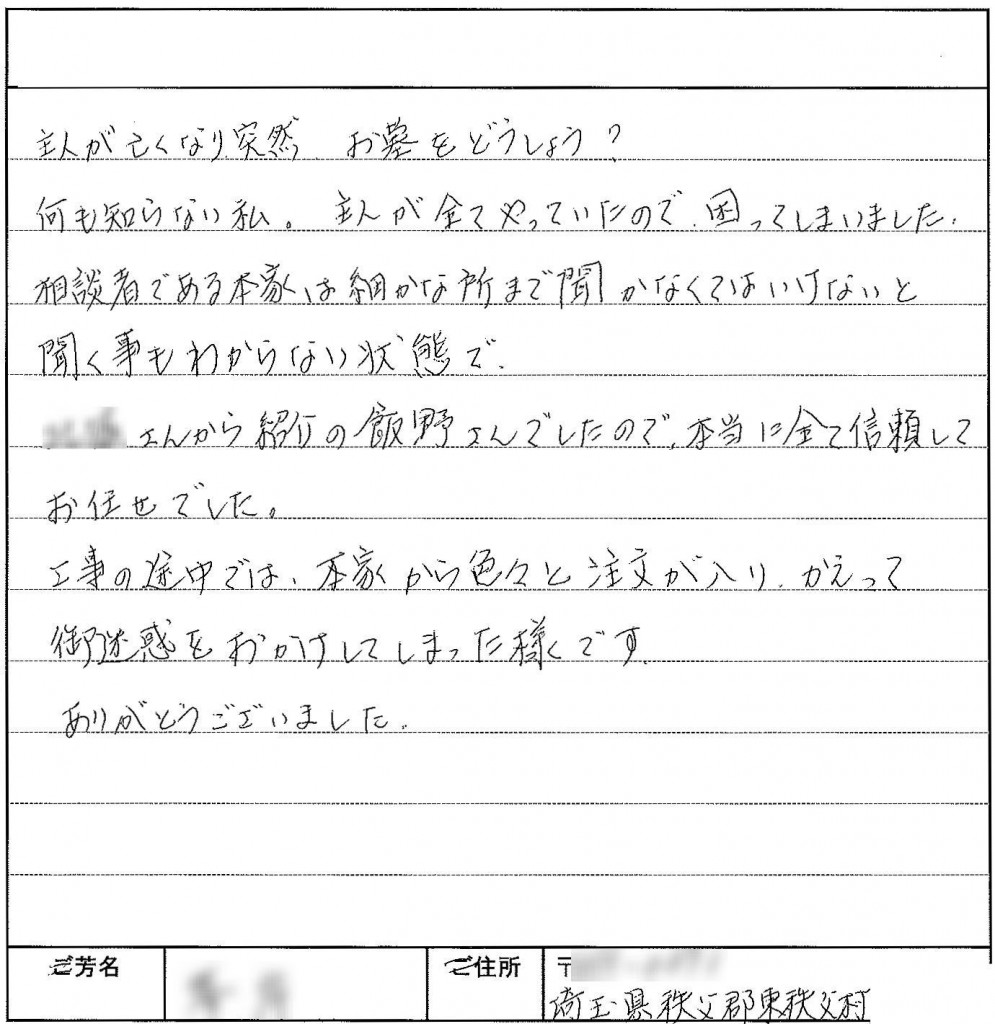 主人が亡くなり突然 お墓をどうしょう?
何も知らない私。主人が全てやっていたので、困ってしまいました.
相談者である本家は細かな所まで聞かなくてはいけないと
聞く事もわからない状態で.
さんから紹介の飯野さんでしたので、本当に全て信頼して
お任せでした。
工事の途中では、本家から色々と注文が入り、かえって
御迷惑をおかけしてしまった様です.
ありがとうございました.
ご芳名
ご住所
〒
埼玉県秩父郡東秩父村